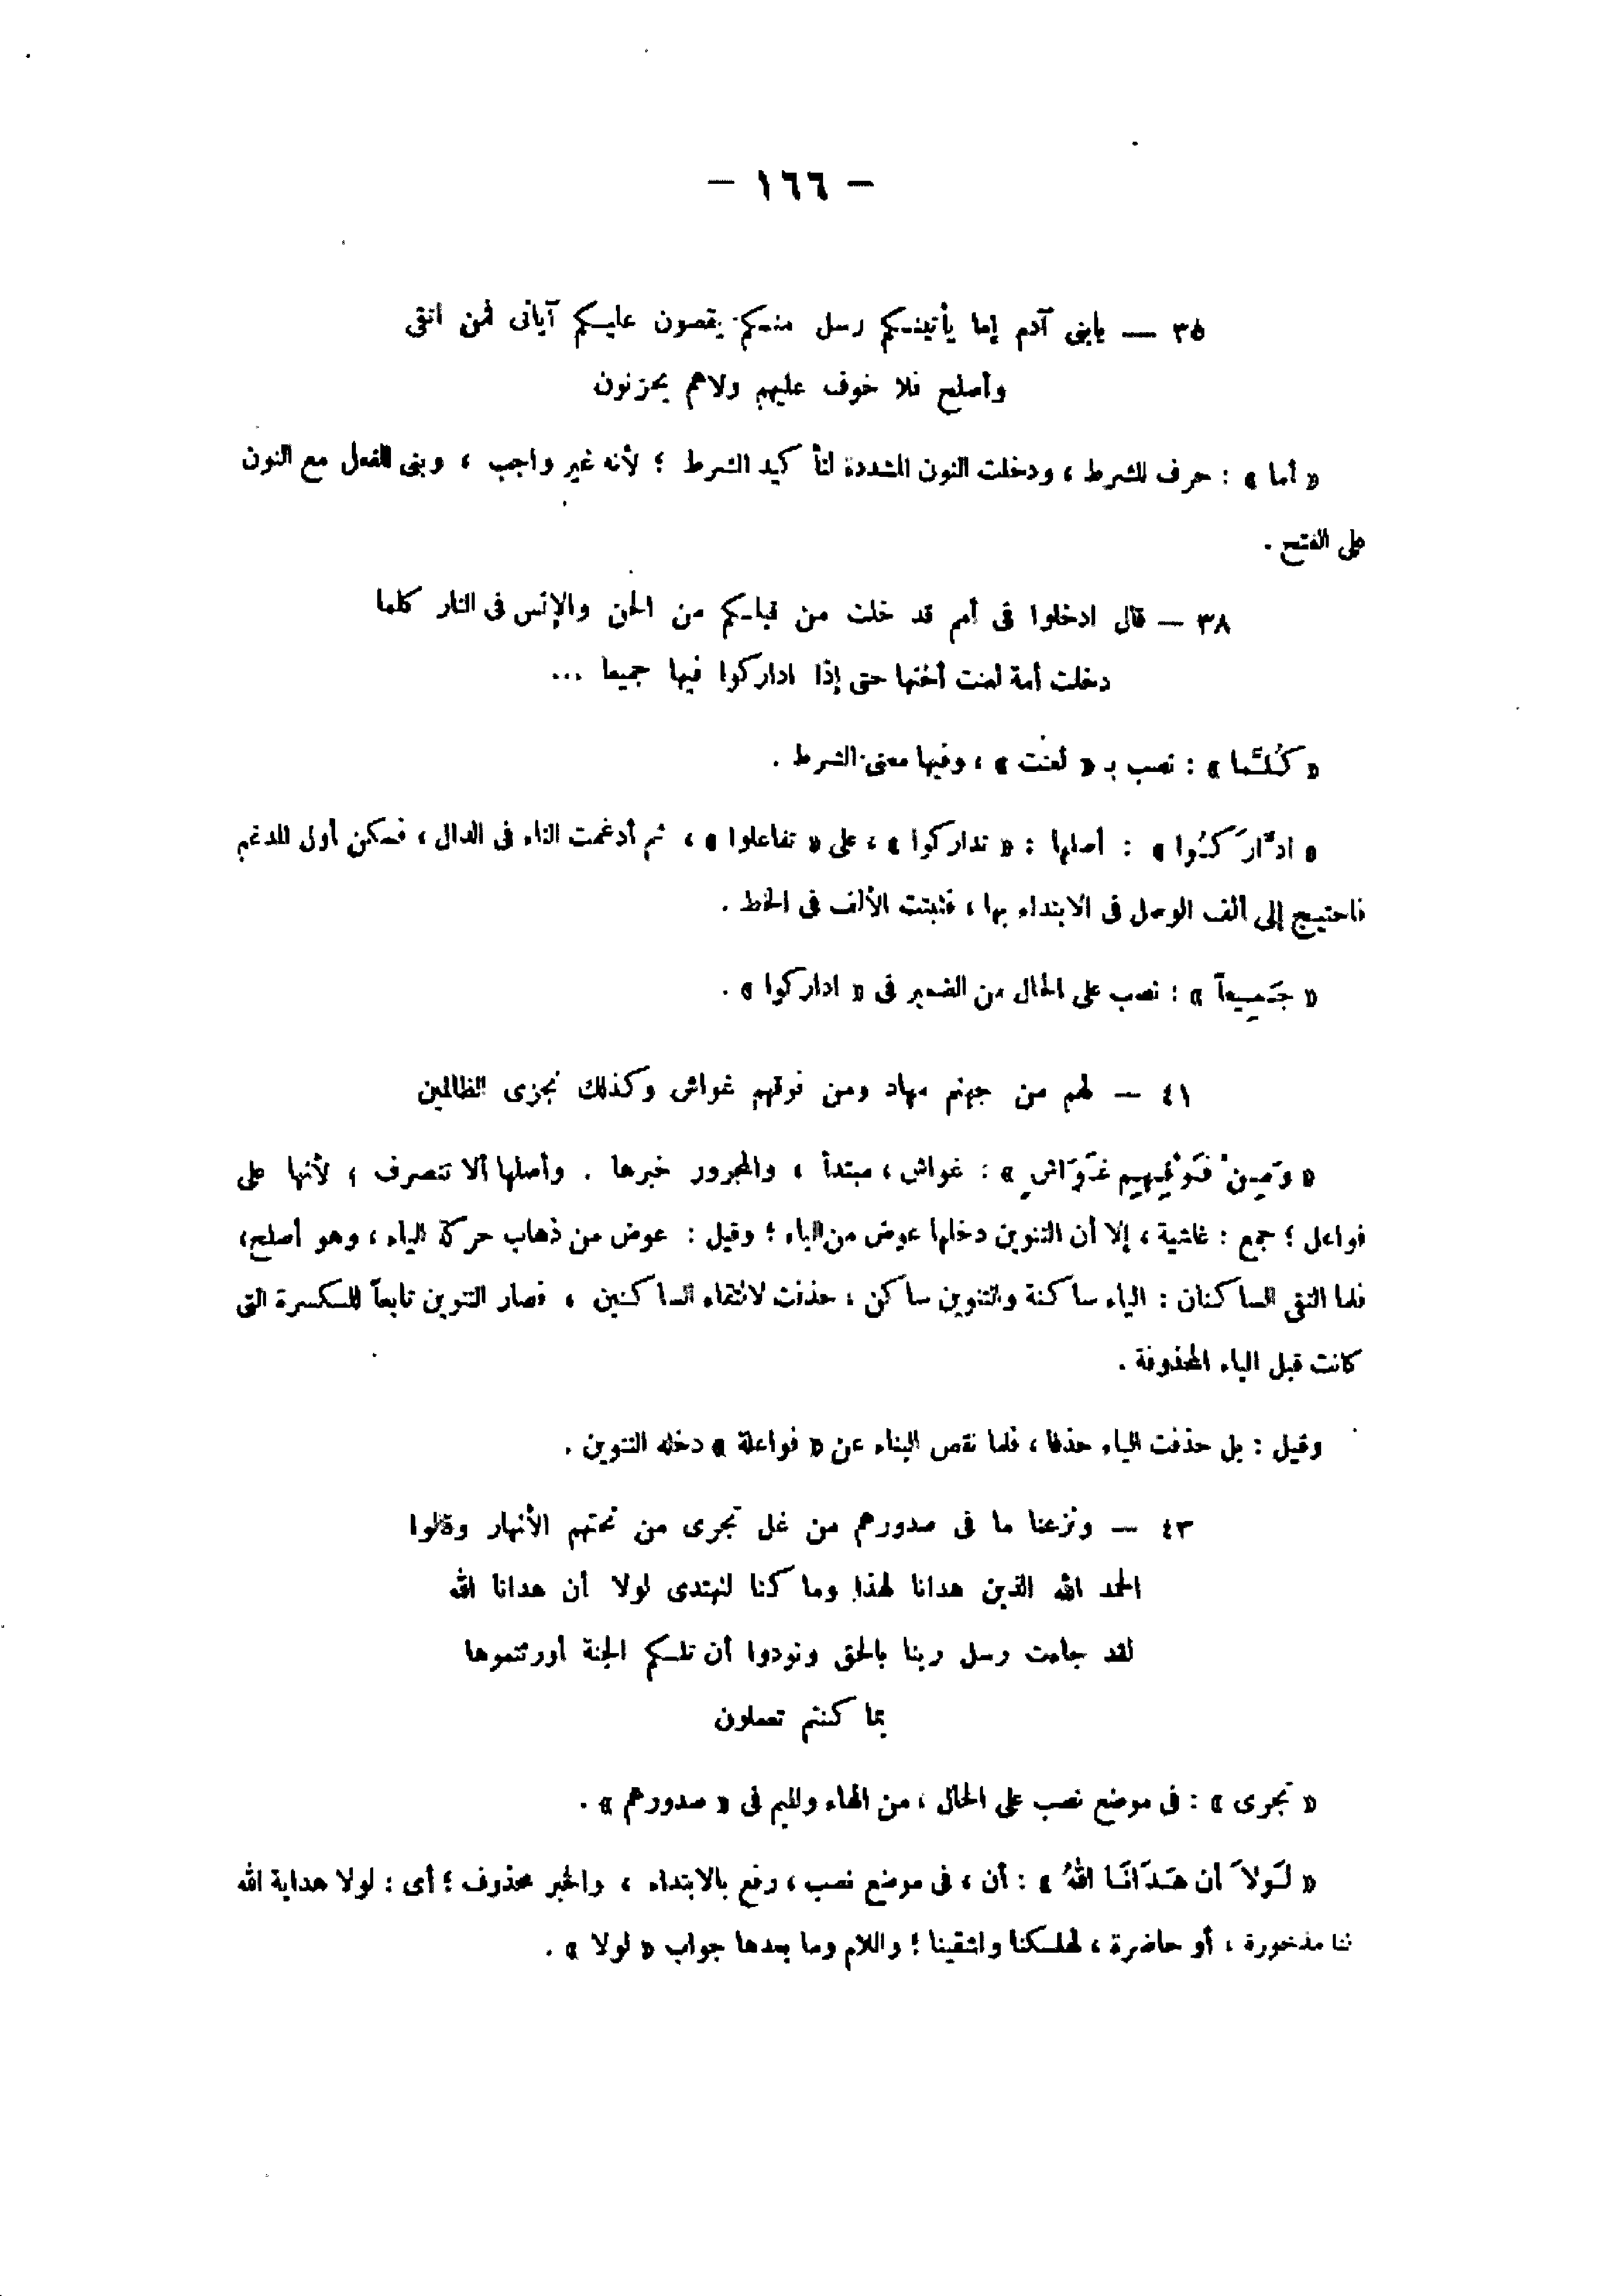 — ١٦٦ —
٣٥ — يابنى آدم إما يأتينكم رسل منكم يقصون عليكم آياتى فمن اتقى
وأصلح فلا خوف عليهم ولاهم يحزنون
« أما » : حرف للشرط ، ودخلت النون المشددة لتأ كيد الشرط ؛ لأنه غير واجب ، وبنى الفعل مع النون
على الفتح .
٣٨ — قال ادخلوا فى أمم قد خلت من قبلكم من الجن والإنس فى النار كلما
دخلت أمة لعنت أختها حتى إذا اداركوا فيها جميعا ...
« كُلَّما » : نصب بـ « لعنت » ، وفيها معنى الشرط .
« ادَّارَكُوا » : أصلها : « تداركوا » ، على « تفاعلوا » ، ثم أدغمت التاء فى الدال ، فسكن أول المدغم
فاحتيج إلى ألف الوصل فى الابتداء بها ، فثبتت الألف فى الخط .
« جَمِيعاً » : نصب على الحال من الضمير فى « اداركوا » .
٤١ — لهم من جهنم مهاد ومن فوقهم غواش وكذلك نجزى الظالمين
« وَمِنْ فَوْقِهِم غَوَاشٍ » : غواش ، مبتدأ ، والمجرور خبرها . وأصلها ألا تنصرف ؛ لأنها على
فواعل ؛ جمع : غاشية ، إلا أن التنوين دخلها عوض من الياء ؛ وقيل : عوض من ذهاب حركة الياء ، وهو أصلح ،
فلما التقى الساكنان : الياء ساكنة والتنوين ساكن ، حذفت لالتقاء الساكنين ، فصار التنوين تابعاً للكسرة التى
كانت قبل الياء المحذوفة .
وقيل : بل حذفت الياء حذفا ، فلما نقص البناء عن « فواعلة » دخله التنوين .
٤٣ — ونزعنا ما فى صدورهم من غل تجرى من تحتهم الأنهار وقالوا
الحمد لله الذين هدانا لهذا وما كنا لنهتدى لولا أن هدانا الله
لقد جاءت رسل ربنا بالحق ونودوا أن تلكم الجنة أورثتموها
بما كنتم تعملون
« تجرى » : فى موضع نصب على الحال ، من الهاء والميم فى « صدورهم » .
« لَولاَ أن هَدَانَا اللهُ » : أن ، فى موضع نصب ، رفع بالابتداء ، والخبر محذوف ؛ أى : لولا هداية الله
لنا مذخورة ، أو حاضرة ، لهلكنا واشقينا ؛ واللام وما بعدها جواب « لولا » .